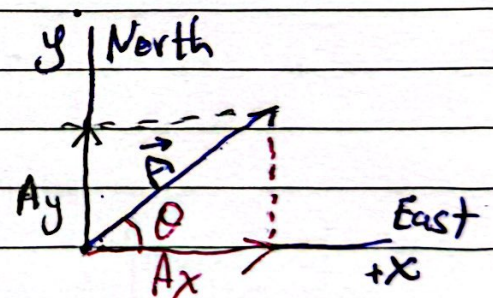 y North
F⃗
Ay θ
East
Ax +x